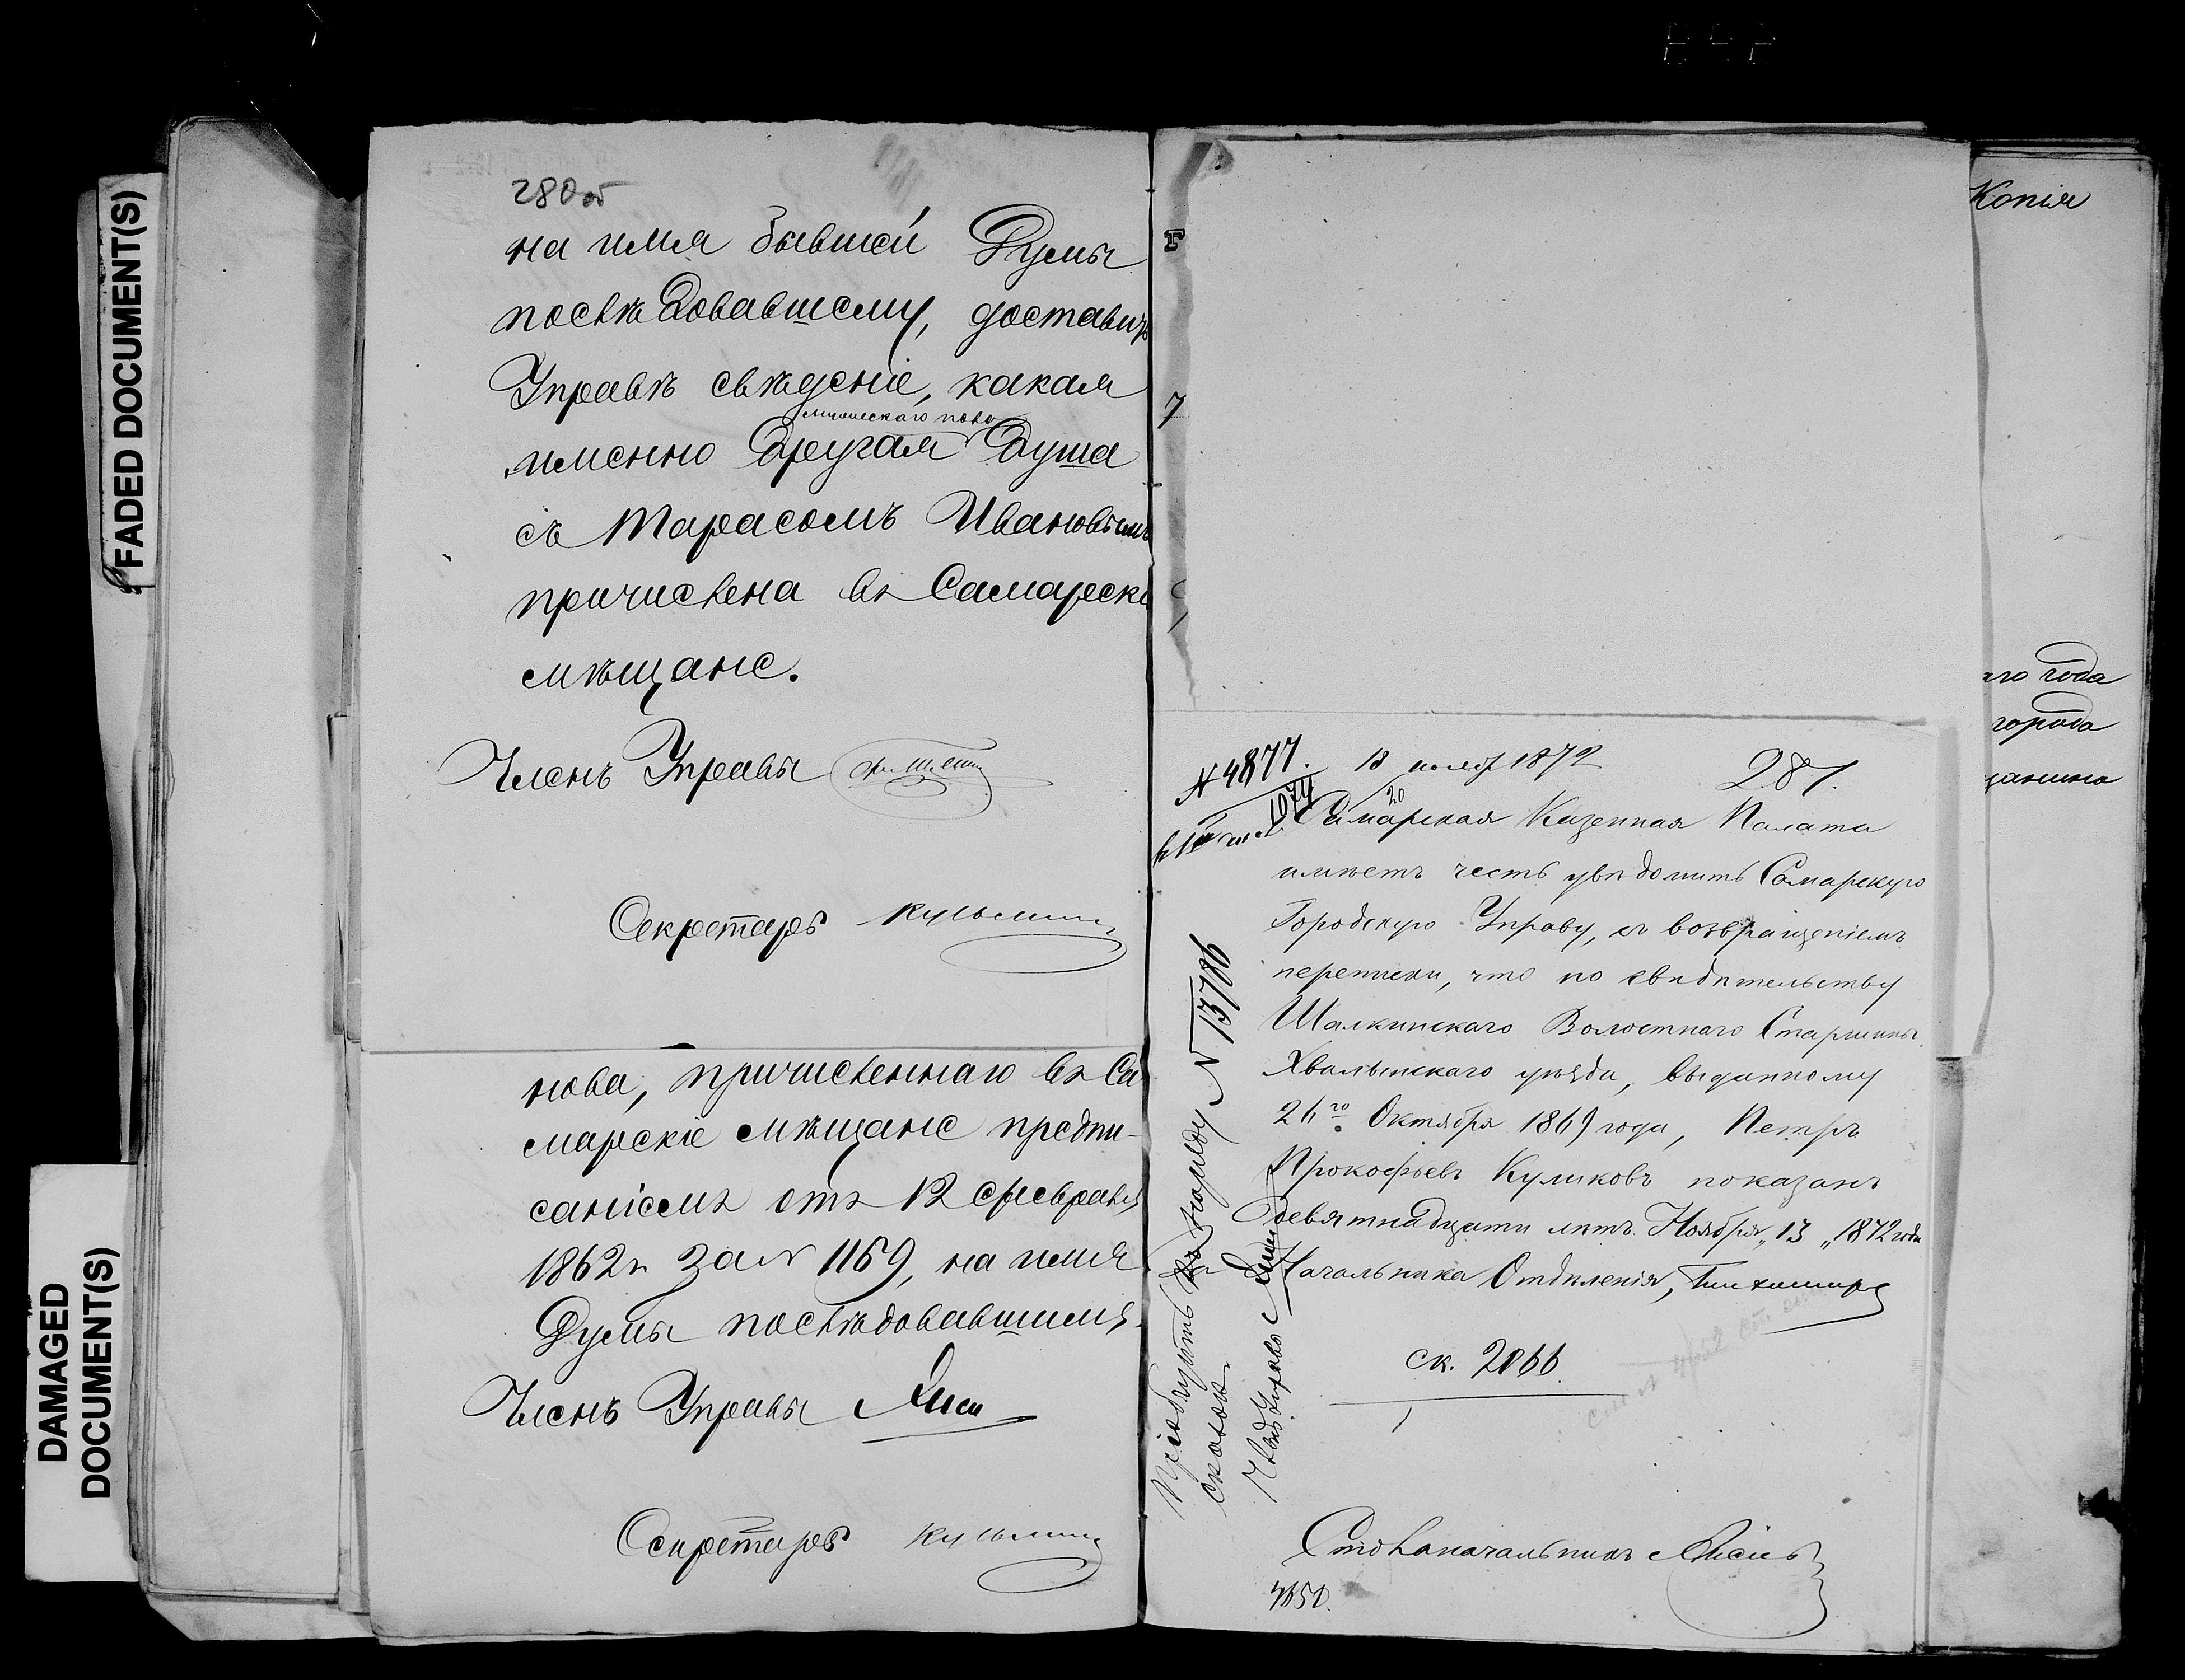 FADED DOCUMENT(S)
DAMAGED
DOCUMENT(S)
280 об
на имя бывшей Думы
послѣдовавшему, доставить
Управѣ свѣдѣніе, какая
мужескаго пола
именно другая душа
съ Тарасомъ Ивановымъ
причислена въ Самарскі
мѣщане.
Членъ Управы
Секретарь
нова, причисленнаго въ Са
марскіе мѣщане предпи-
саніемъ отъ 12 февраля
1862 г. за N 1169, на имя
Думы послѣдовавшимъ.
Членъ Управы
Секретарь
N 4877.
1974
18 нояб 1872
20
281.
Самарская Казенная Палата
имѣетъ честь увѣдомить Самарскую
Городскую Управу, съ возвращеніемъ
переписки, что по свидѣтельству
Шалкинскаго Волостнаго Старшины
Хвалынскаго уѣзда, выданному
26го Октября 1869 года, Петръ
Прокофьевъ Куликовъ показанъ
девятнадцати лѣтъ. Ноября „13„ 1872 года
Начальника Отдѣленія,
ск. 2066.
Столоначальникъ
4650.
N 13786
Пріобщить къ наряду
сказокъ
Членъ Управы
Копія
го года
города
щанина